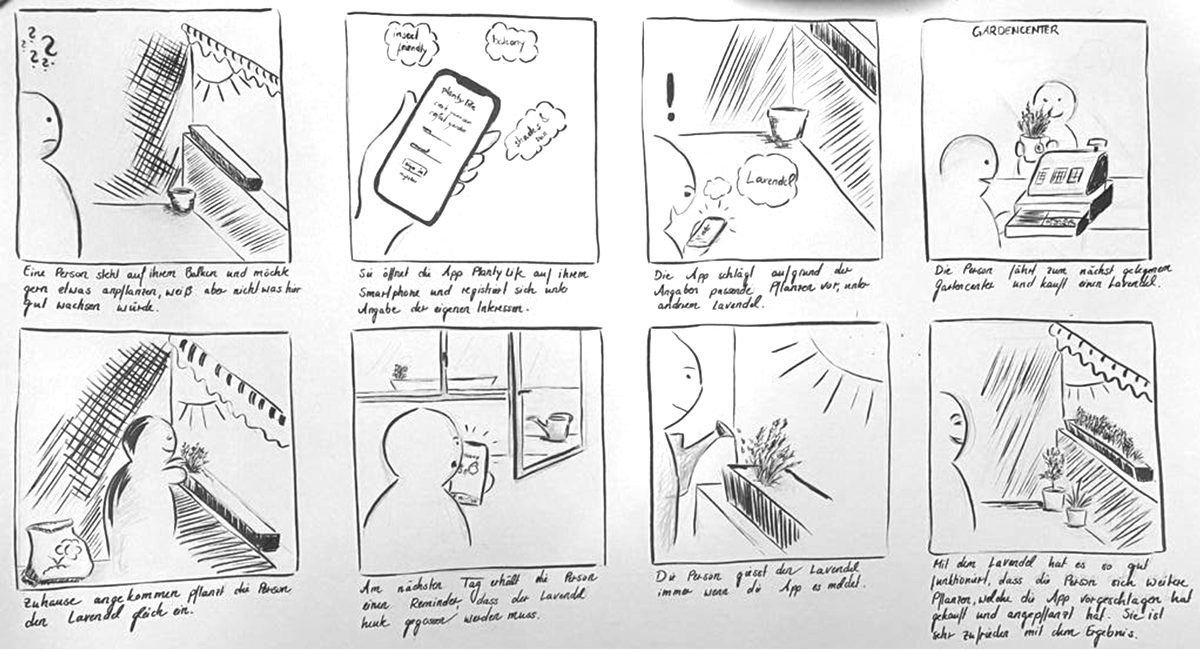 ? ? ?
? ?
Eine Person steht auf ihrem Balkon und möchte
gern etwas anpflanzen, weiß aber nicht was hier
gut wachsen würde.
insect
friendly
balcony
shades &
sun
planty life
register
Sie öffnet die App Planty Life auf ihrem
Smartphone und registriert sich unter
Angabe der eigenen Interessen.
!
Lavendel
Die App schlägt aufgrund der
Angaben passende Pflanzen vor, unter
anderem Lavendel.
GARDENCENTER
Die Person fährt zum nächst gelegenen
Gartencenter und kauft einen Lavendel.
Zuhause angekommen pflanzt die Person
den Lavendel gleich ein.
Am nächsten Tag erhält die Person
einen Reminder, dass der Lavendel
heute gegossen werden muss.
Die Person giesst den Lavendel
immer wenn die App es meldet.
Mit dem Lavendel hat es so gut
funktioniert, dass die Person sich weitere
Pflanzen, welche die App vorgeschlagen hat
gekauft und angepflanzt hat. Sie ist
sehr zufrieden mit dem Ergebnis.